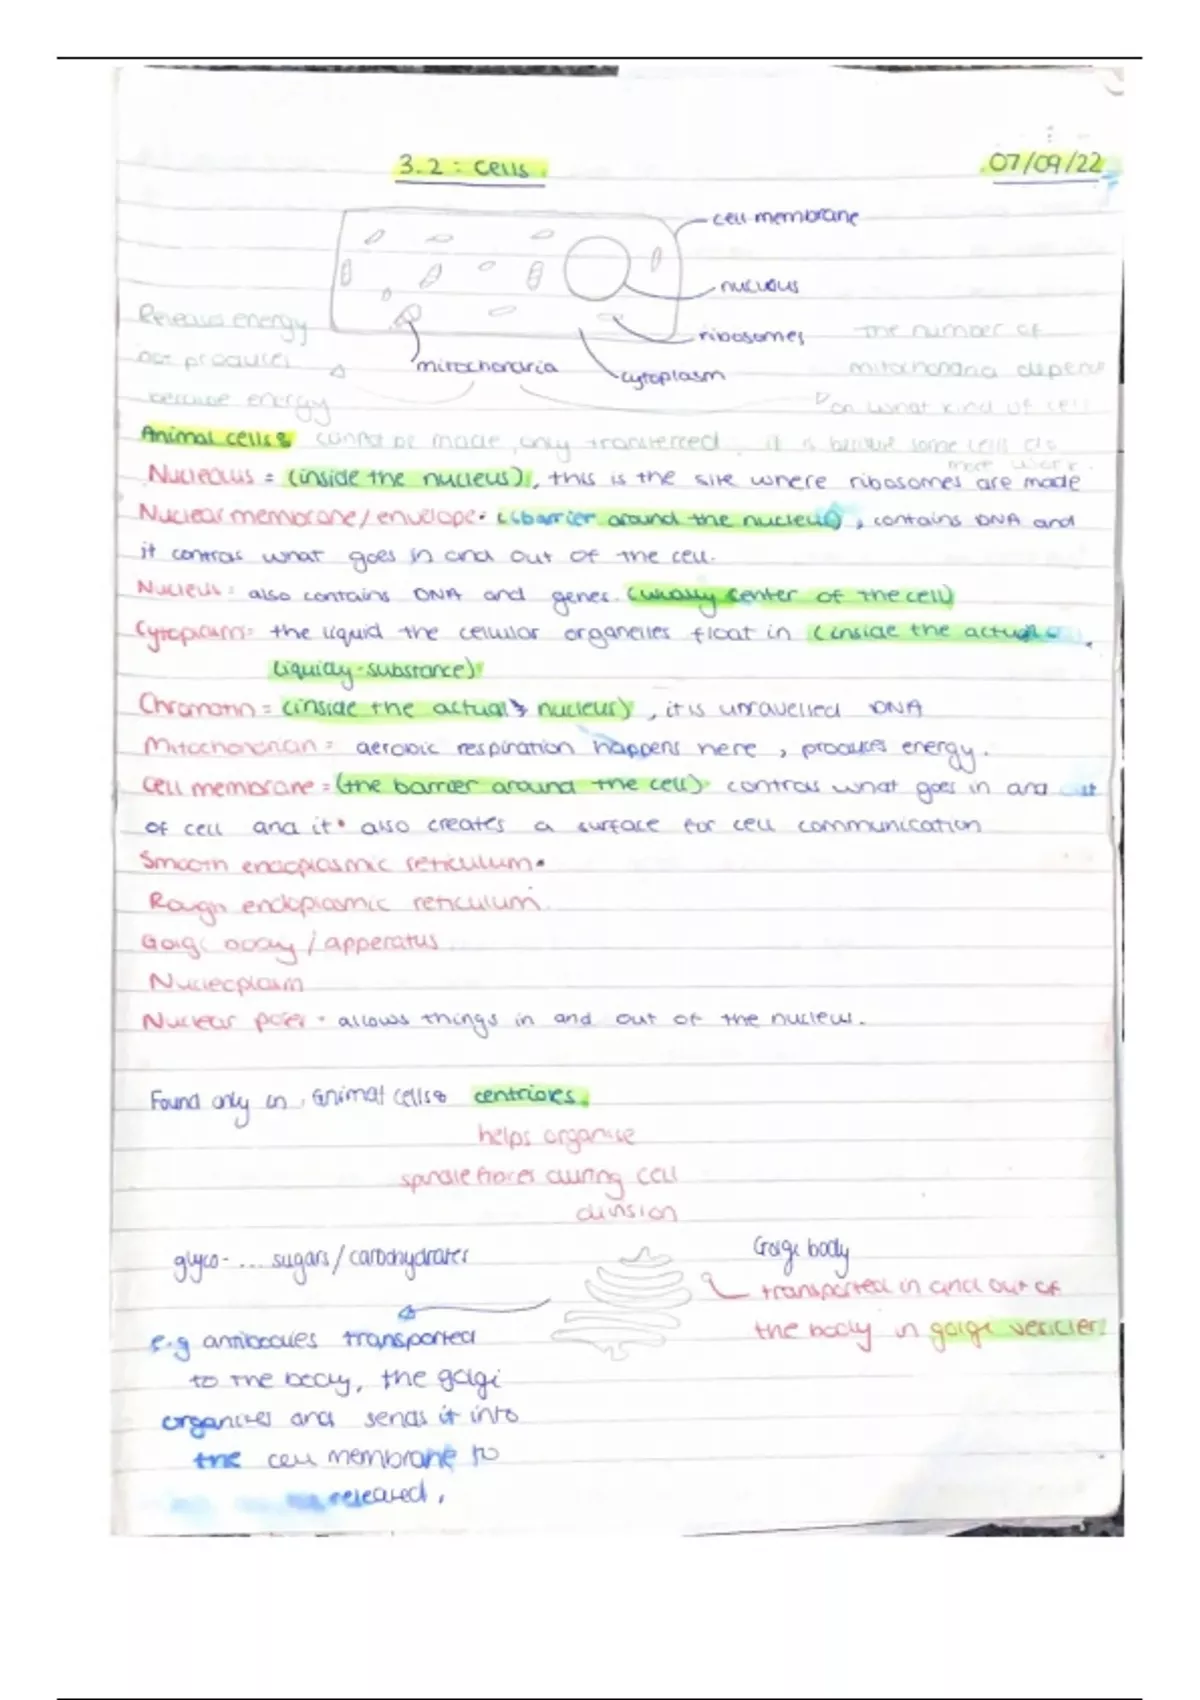 3.2: Cells.
07/09/22
cell membrane
nucleus
Releases energy
ribosomes
the number of
not produces
mitochondria
cytoplasm
mitochondria depends
because energy
on what kind of cell
Animal cells: cannot be made, only transferred. it is because some cells do
more work.
Nucleolus = (inside the nucleus), this is the site where ribosomes are made
Nuclear membrane/envelope. (barrier around the nucleus), contains DNA and
it controls what goes in and out of the cell.
Nucleus: also contains DNA and genes. (usually center of the cell)
Cytoplasm= the liquid the cellular organelles float in (inside the actual
liquidy-substance)
Chromatin = (inside the actual nucleus), it is unravelled DNA
Mitochondrian = aerobic respiration happens here, produces energy.
Cell membrane = (the barrier around the cell) controls what goes in and out
of cell and it also creates a surface for cell communication
Smooth endoplasmic reticulum.
Rough endoplasmic reticulum.
Golgi body / apparatus
Nucleoplasm
Nuclear pores allows things in and out of the nucleus.
Found only in animal cells: centrioles.
helps organise
spindle fibres during cell
division
glyco- ... sugars/carbohydrates
Golgi body
transported in and out of
the body in golgi vesicles.
e.g antibodies transported
to the body, the golgi
organizes and sends it into
the cell membrane to
released.